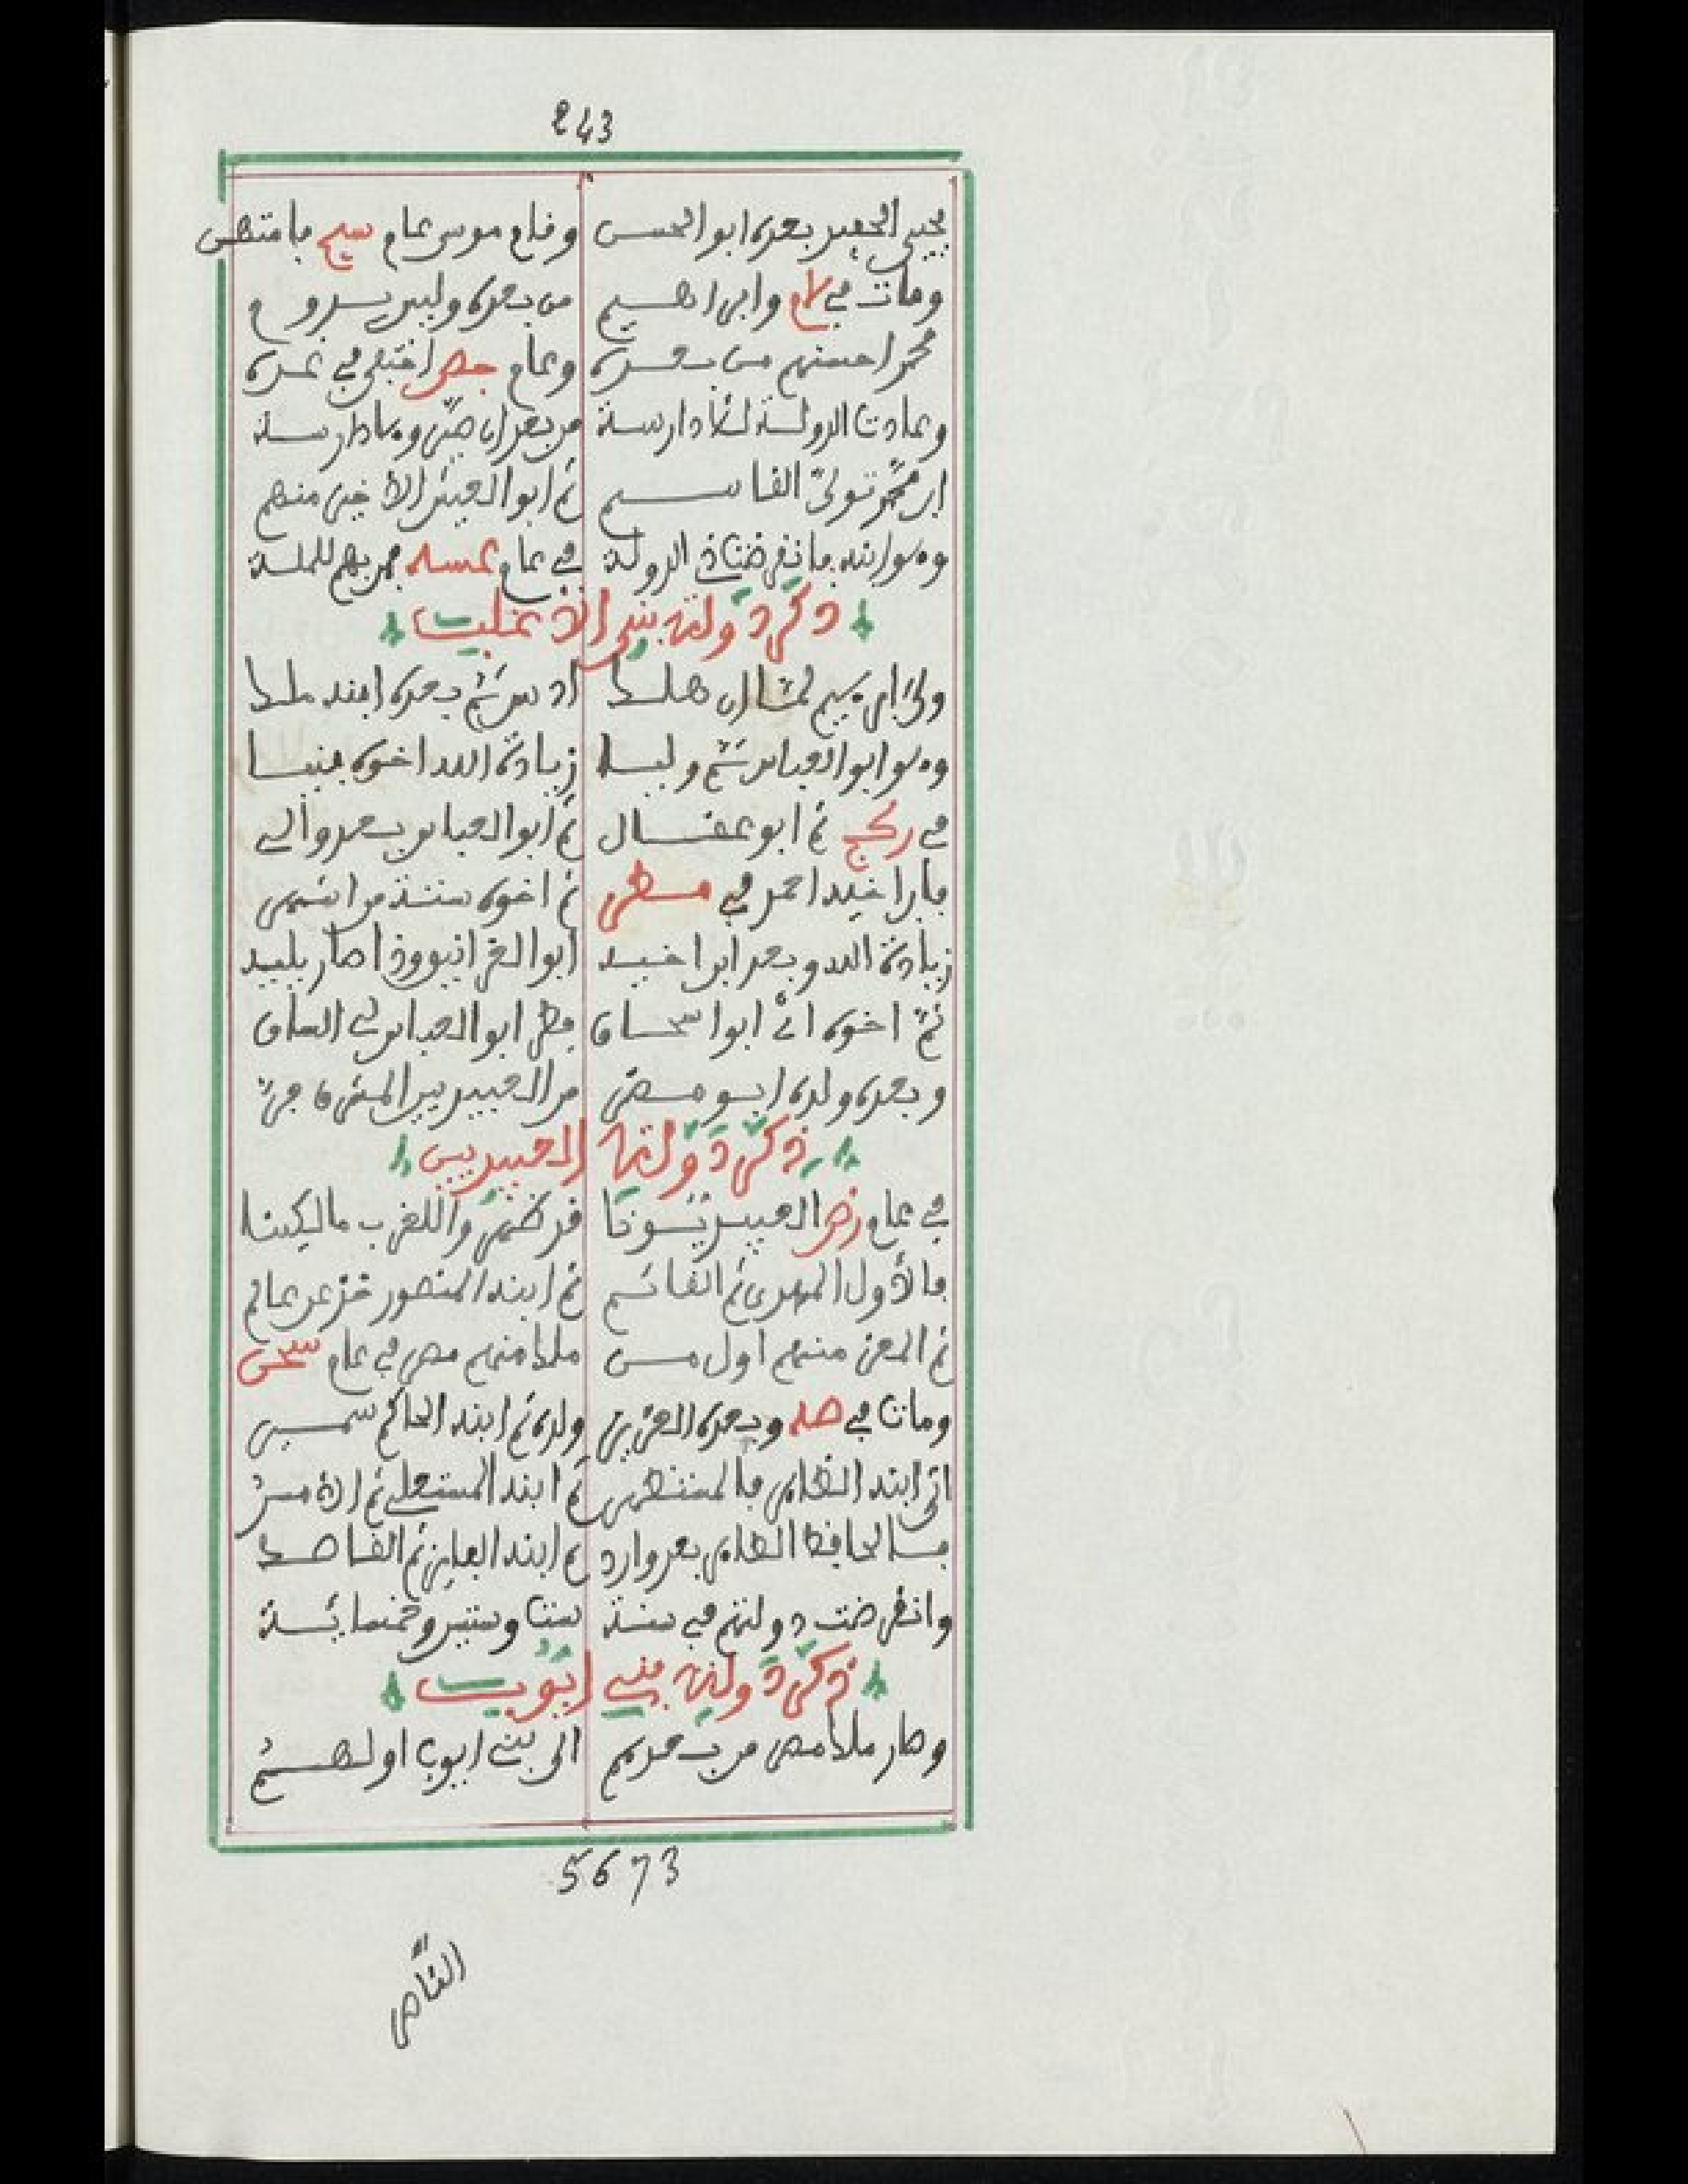 243
يحيى الحفيد بعده ابو الحسن وقام موسى عام سيح فامتهن
ومات في لام وابراهيم من بعده وليس يدوم
محمد احسنهم من بعده وعام جص اختفى في عده
وعادت الدولة للادارسة من بعد ان صروها دارسة
ابن محمد تولى القاسم ثم ابو العيش الاخير منهم
وهو ابنه فانقرضت ذي الدولة في عام عمسه فمر بهم للملة
ذكر دولة بني الاغلب
ولى ابراهيم ثم هلك ادنس ثم بعده ابنه ملك
وهو ابو العباس ثم وليا زيادة الله اخوه فنيا
في ركج ثم ابو عقال ثم ابو العباس بعد والى
فابن اخيه احمد في مطر ثم اخوه سنة من اشهر
زيادة الله وبعد ابن اخيه ابو الغرانيق وذا صار يليه
ثم اخوه أي ابو اسحاق فقل ابو العباس في السباق
وبعده ولده ابو مضر من العبيديين المشرق فر
ذكر دولة العبيديين
في عام رضو العبيديونا قد ظهروا للغرب مالكينا
فالاول المهدي ثم القائم ثم ابنه المنصور خذ عن عالم
ثم المعز منهم اول من ملك منهم مصر في عام سحن
ومات في صله وبعده العزيز ولده ثم ابنه الحاكم
اتى ابنه الظاهر فالمستنصر ثم ابنه المستعلي ثم الآمر
فالحافظ الظافر بعد وارد ثم ابنه الفايز ثم العاضد
وانقرضت دولتهم في سنة ست وستين وخمسمائة
ذكر دولة بني ايوب
وصار ملك مصر من بعدهم الى بني ايوب اولهم
5673
الناصر